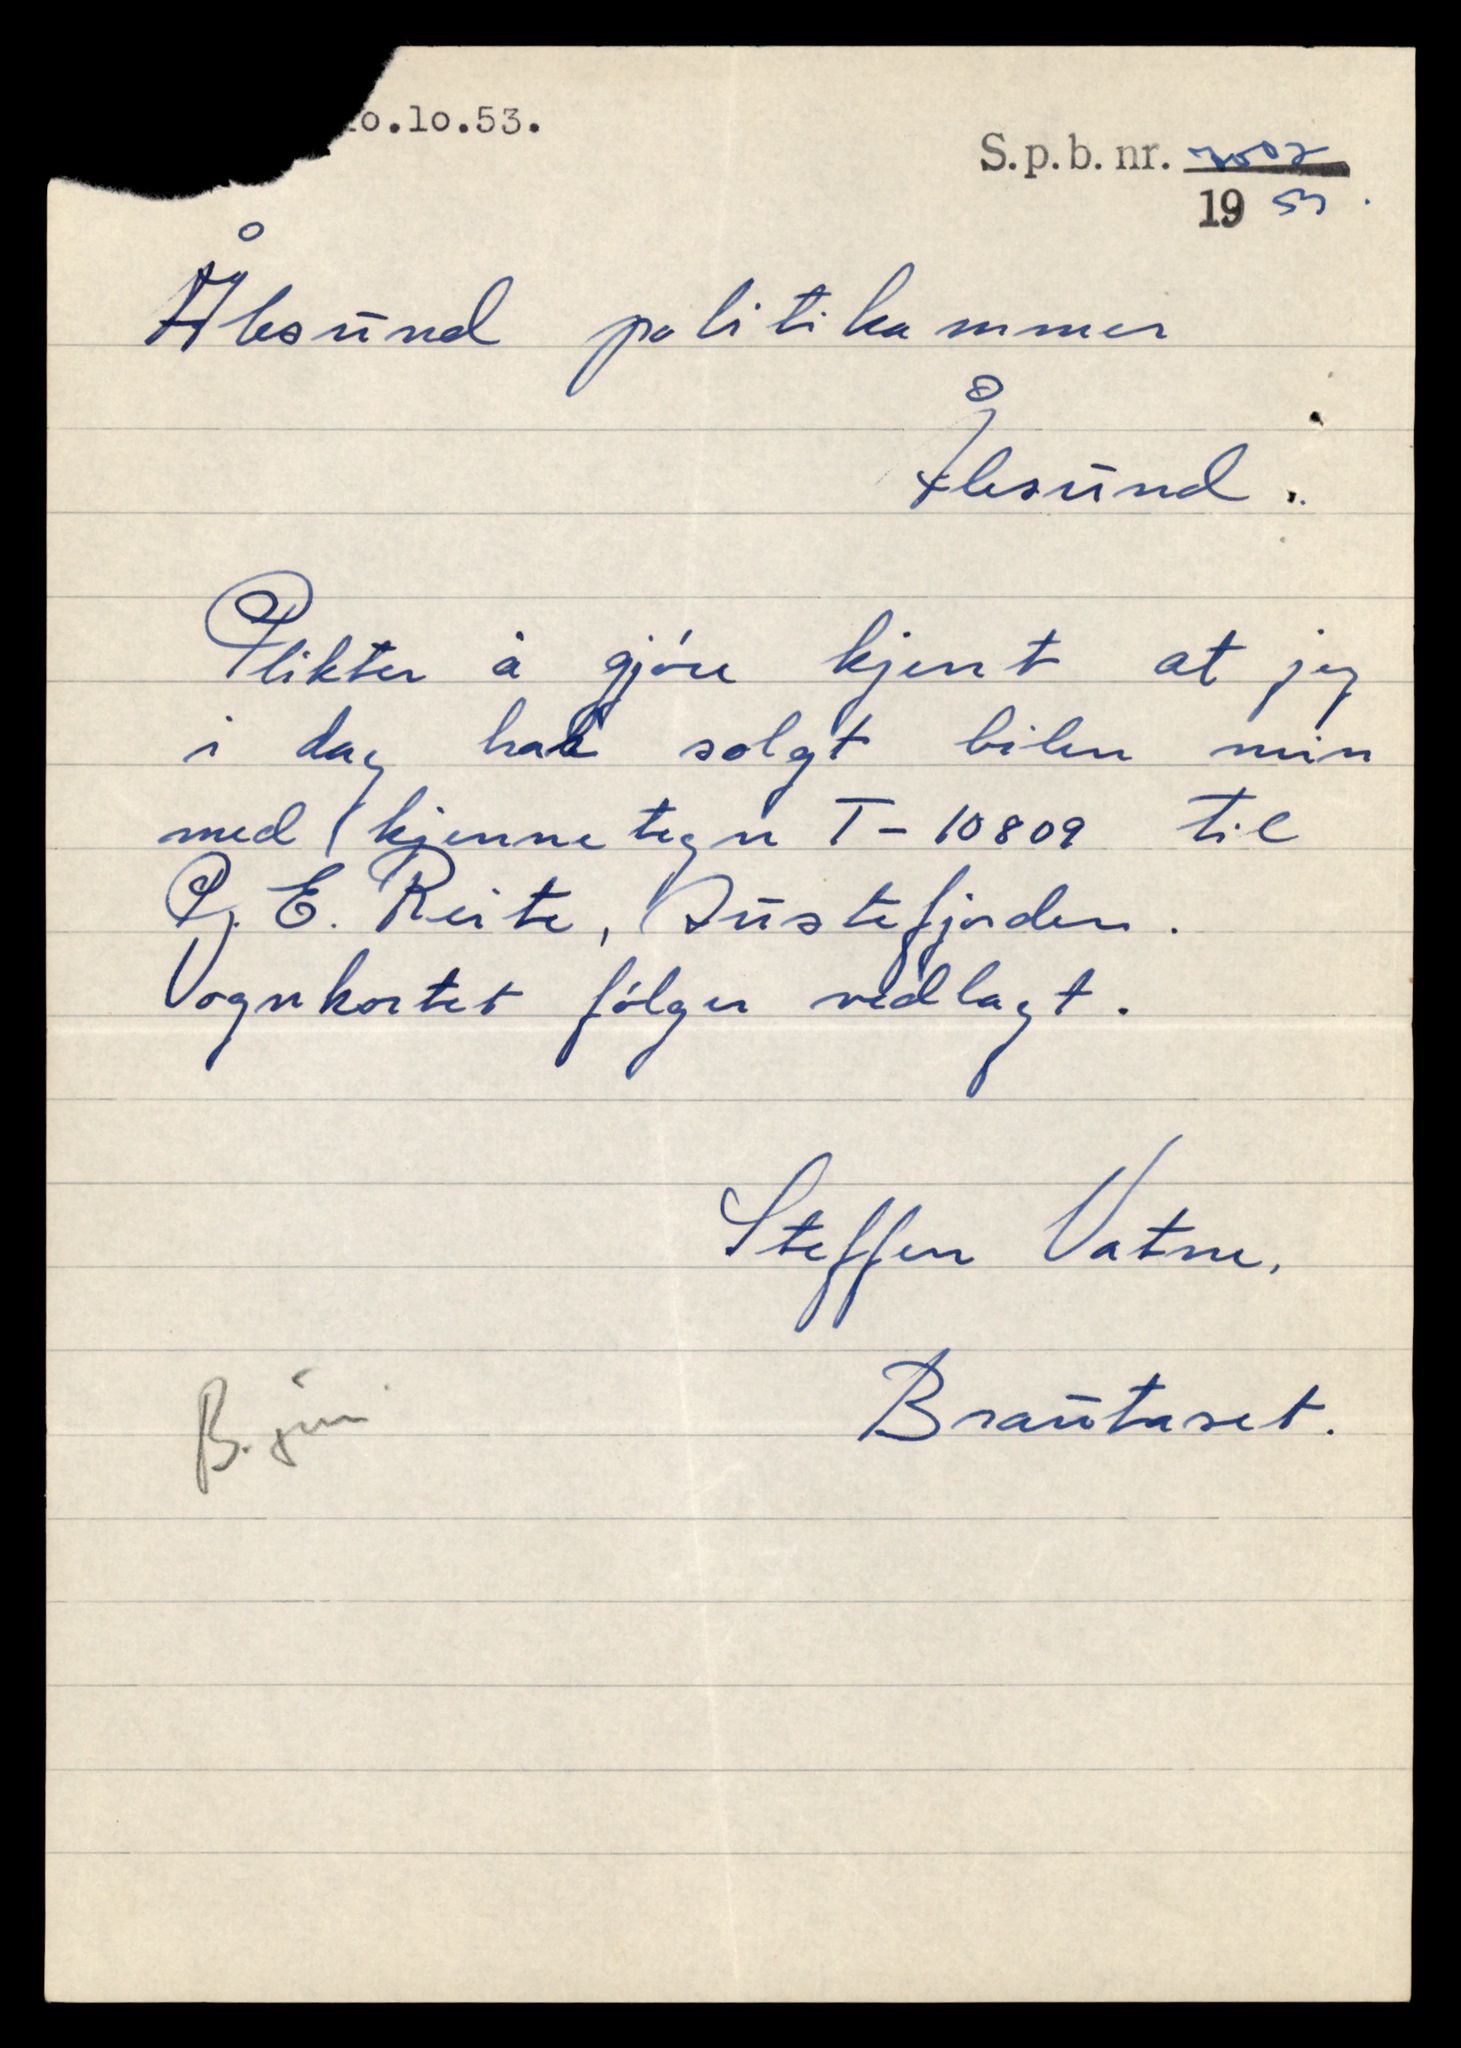 10.10.53.
S.p.b. nr. 7502
1953.
Ålesund politikammer
Ålesund.
Plikter å gjøre kjent at jeg
i dag har solgt bilen min
med kjennetegn T-10809 til
P. E. Reite, Austefjorden.
Vognkortet følger vedlagt.
Steffen Vatne,
Brautaset.